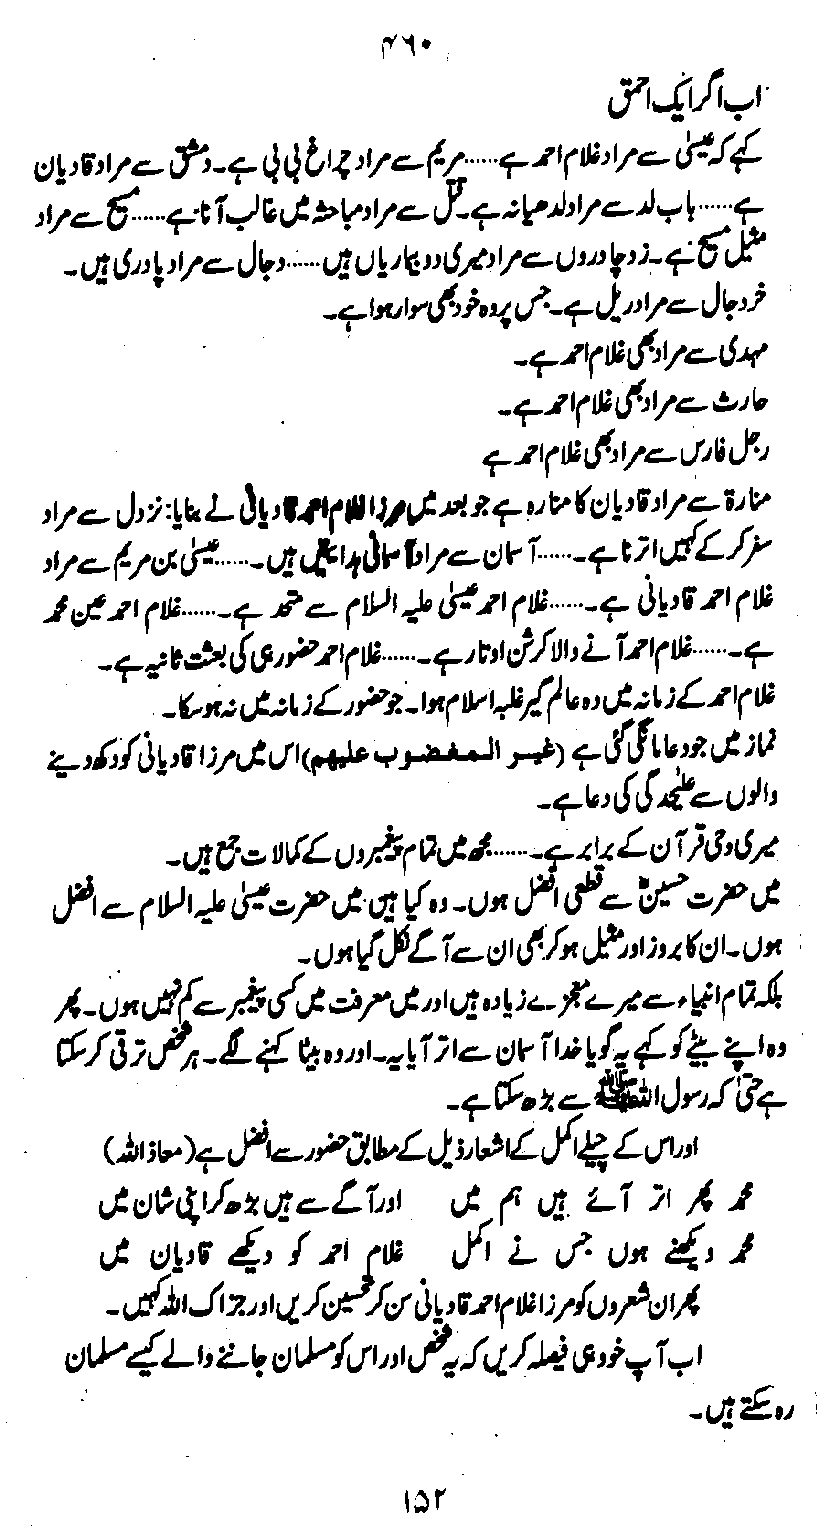 ۴۶۰
اب اگر ایک احمق
کہے کہ عیسیٰ سے مراد غلام احمد ہے......مریم سے مراد چراغ بی بی ہے۔ دمشق سے مراد قادیان
ہے......باب لد سے مراد لدھیانہ ہے۔ قتل سے مراد مباحثہ میں غالب آنا ہے......مسیح سے مراد
مثیل مسیح ہے۔ زرد چادروں سے مراد میری دو بیماریاں ہیں......دجال سے مراد پادری ہیں۔
خر دجال سے مراد ریل ہے۔ جس پر وہ خود بھی سوار ہوا ہے۔
مہدی سے مراد بھی غلام احمد ہے۔
حارث سے مراد بھی غلام احمد ہے۔
رجل فارس سے مراد بھی غلام احمد ہے
منارۃ سے مراد قادیان کا منارہ ہے جو بعد میں مرزا غلام احمد قادیانی نے بنایا: نزول سے مراد
سفر کر کے کہیں اترنا ہے۔......آسمان سے مراد آسمانی ہدایتیں ہیں۔......عیسیٰ بن مریم سے مراد
غلام احمد قادیانی ہے۔......غلام احمد عیسیٰ علیہ السلام سے متحد ہے۔......غلام احمد عین محمد
ہے۔......غلام احمد آنے والا کرشن اوتار ہے۔......غلام احمد حضور ہی کی بعثت ثانیہ ہے۔
غلام احمد کے زمانہ میں وہ عالم گیر غلبہ اسلام ہوا۔ جو حضور کے زمانہ میں نہ ہو سکا۔
نماز میں جو دعا مانگی گئی ہے (غیر المغضوب علیہم) اس میں مرزا قادیانی کو دکھ دینے
والوں سے علیحدگی کی دعا ہے۔
میری وحی قرآن کے برابر ہے۔......مجھ میں تمام پیغمبروں کے کمالات جمع ہیں۔
میں حضرت حسینؓ سے قطعی افضل ہوں۔ وہ کیا ہیں میں حضرت عیسیٰ علیہ السلام سے افضل
ہوں۔ ان کا بروز اور مثیل ہو کر بھی ان سے آگے نکل گیا ہوں۔
بلکہ تمام انبیاء سے میرے معجزے زیادہ ہیں اور میں معرفت میں کسی پیغمبر سے کم نہیں ہوں۔ پھر
وہ اپنے بیٹے کو کہے یہ گویا خدا آسمان سے اتر آیا یہ۔ اور وہ بیٹا کہنے لگے۔ ہر شخص ترقی کر سکتا
ہے حتیٰ کہ رسول اللہ ﷺ سے بڑھ سکتا ہے۔
اور اس کے چیلے اکمل کے اشعار ذیل کے مطابق حضور سے افضل ہے (معاذ اللہ)
محمد پھر اتر آئے ہیں ہم میں اور آگے سے ہیں بڑھ کر اپنی شان میں
محمد دیکھنے ہوں جس نے اکمل غلام احمد کو دیکھے قادیان میں
پھر ان شعروں کو مرزا غلام احمد قادیانی سن کر تحسین کریں اور جزاک اللہ کہیں۔
اب آپ خود ہی فیصلہ کریں کہ یہ شخص اور اس کو مسلمان جاننے والے کیسے مسلمان
رہ سکتے ہیں۔
۱۵۲